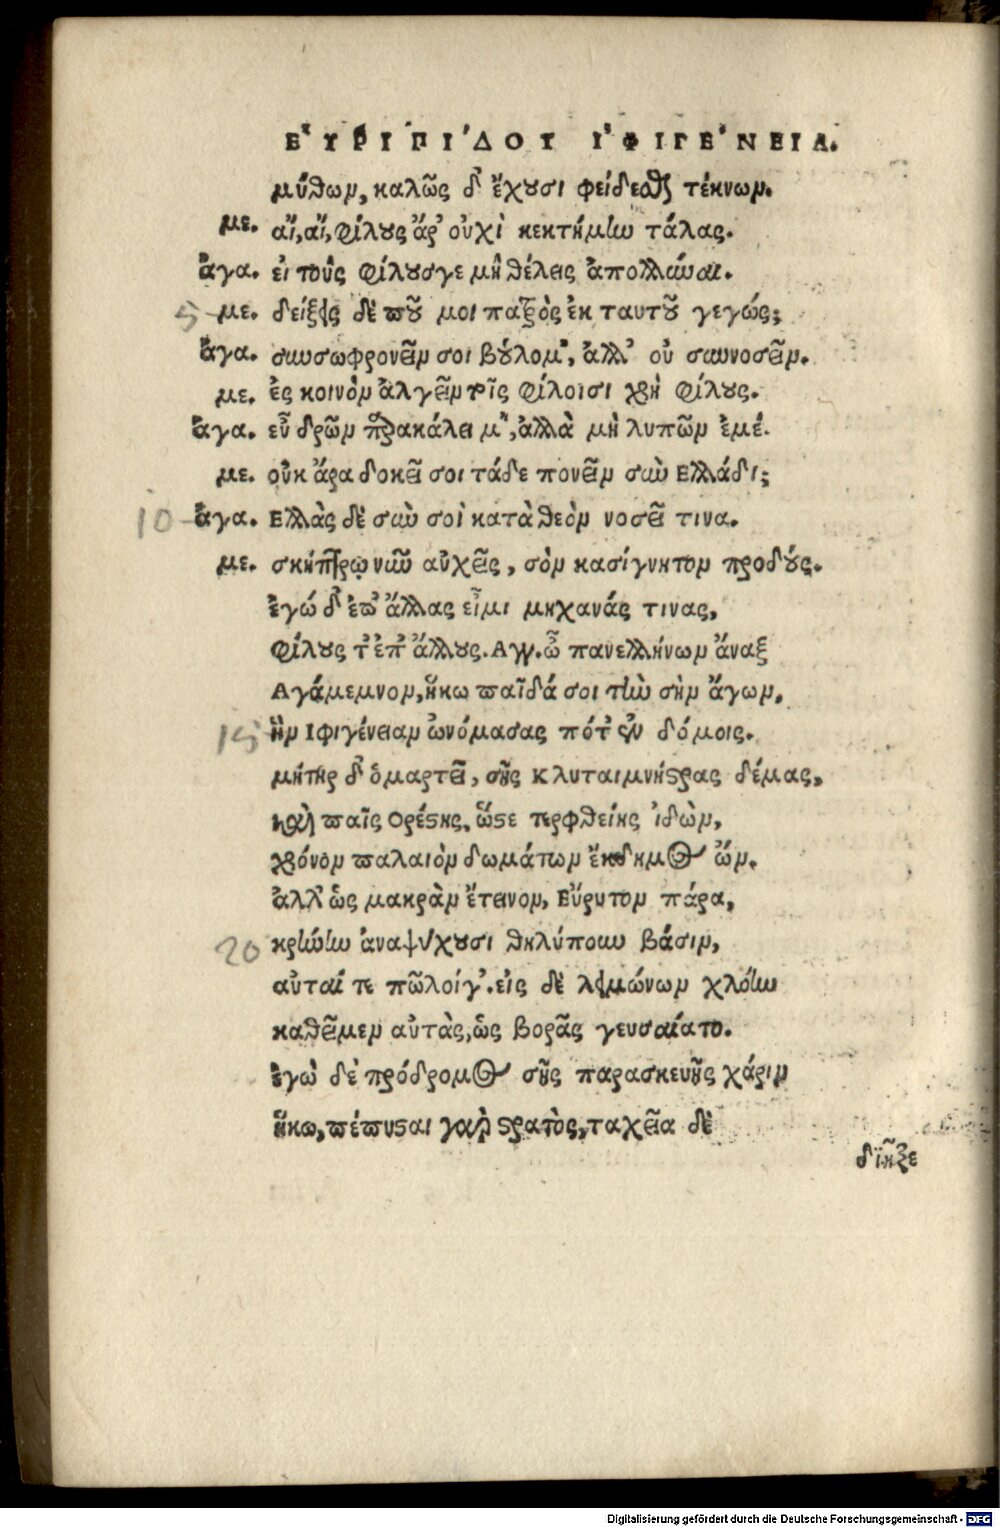 ΕὐΡΙΠΊΔΟΥ ἸΦΙΓΈΝΕΙΑ.
μύθων, καλῶς δ᾽ ἔχουσι φείδεσθαι τέκνων.
με. αἴ, αἴ, φίλους ἄρ᾽ οὐχὶ κεκτήμην τάλας.
ἄγα. εἰ τοὺς φίλους γε μὴ θέλεις ἀπολλύναι.
5 με. δείξεις δὲ ποῦ μοι πατρὸς ἐκ ταυτοῦ γεγώς;
ἄγα. συνσωφρονεῖν σοι βούλομ᾽, ἀλλ᾽ οὐ συννοσεῖν.
με. ἐς κοινὸν ἀλγεῖν τοῖς φίλοισι χρὴ φίλους.
ἄγα. εὖ δρῶν παρακάλει μ᾽, ἀλλὰ μὴ λυπῶν ἐμέ.
με. οὐκ ἄρα δοκεῖ σοι τάδε πονεῖν σὺν Ἑλλάδι;
10 ἄγα. Ἑλλὰς δὲ σὺν σοὶ κατὰ θεὸν νοσεῖ τινα.
με. σκήπτρῳ νῦν αὐχεῖς, σὸν κασίγνητον προδούς.
ἐγώ δ᾽ ἐπ᾽ ἄλλας εἶμι μηχανάς τινας,
φίλους τ᾽ ἐπ᾽ ἄλλους. Αγγ. ὦ πανελλήνων ἄναξ
Αγάμεμνον, ἥκω παῖδά σοι τὴν σὴν ἄγων,
15 ἣν Ιφιγένειαν ὠνόμασας πότ᾽ ἐν δόμοις.
μήτηρ δ᾽ ὁμαρτεῖ, σῆς Κλυταιμνήστρας δέμας,
καὶ παῖς Ορέστης, ὥστε τερφθείης ἰδὼν,
χρόνον παλαιὸν δωμάτων ἔκδημος ὤν.
ἀλλ᾽ ὡς μακρὰν ἔτεινον, Εὔρυτον πάρα,
20 κρήνην ἀναψύχουσι θηλύπουν βάσιν,
αὐταί τε πῶλοίγ᾽. εἰς δὲ λειμώνων χλόην
καθεῖμεν αὐτὰς, ὡς βορᾶς γευσαίατο.
ἐγὼ δὲ πρόδρομος σῆς παρασκευῆς χάριν
ἥκω, πέπυσται γὰρ στρατὸς, ταχεῖα δὲ
διῇξε
Digitalisierung gefördert durch die Deutsche Forschungsgemeinschaft - DFG